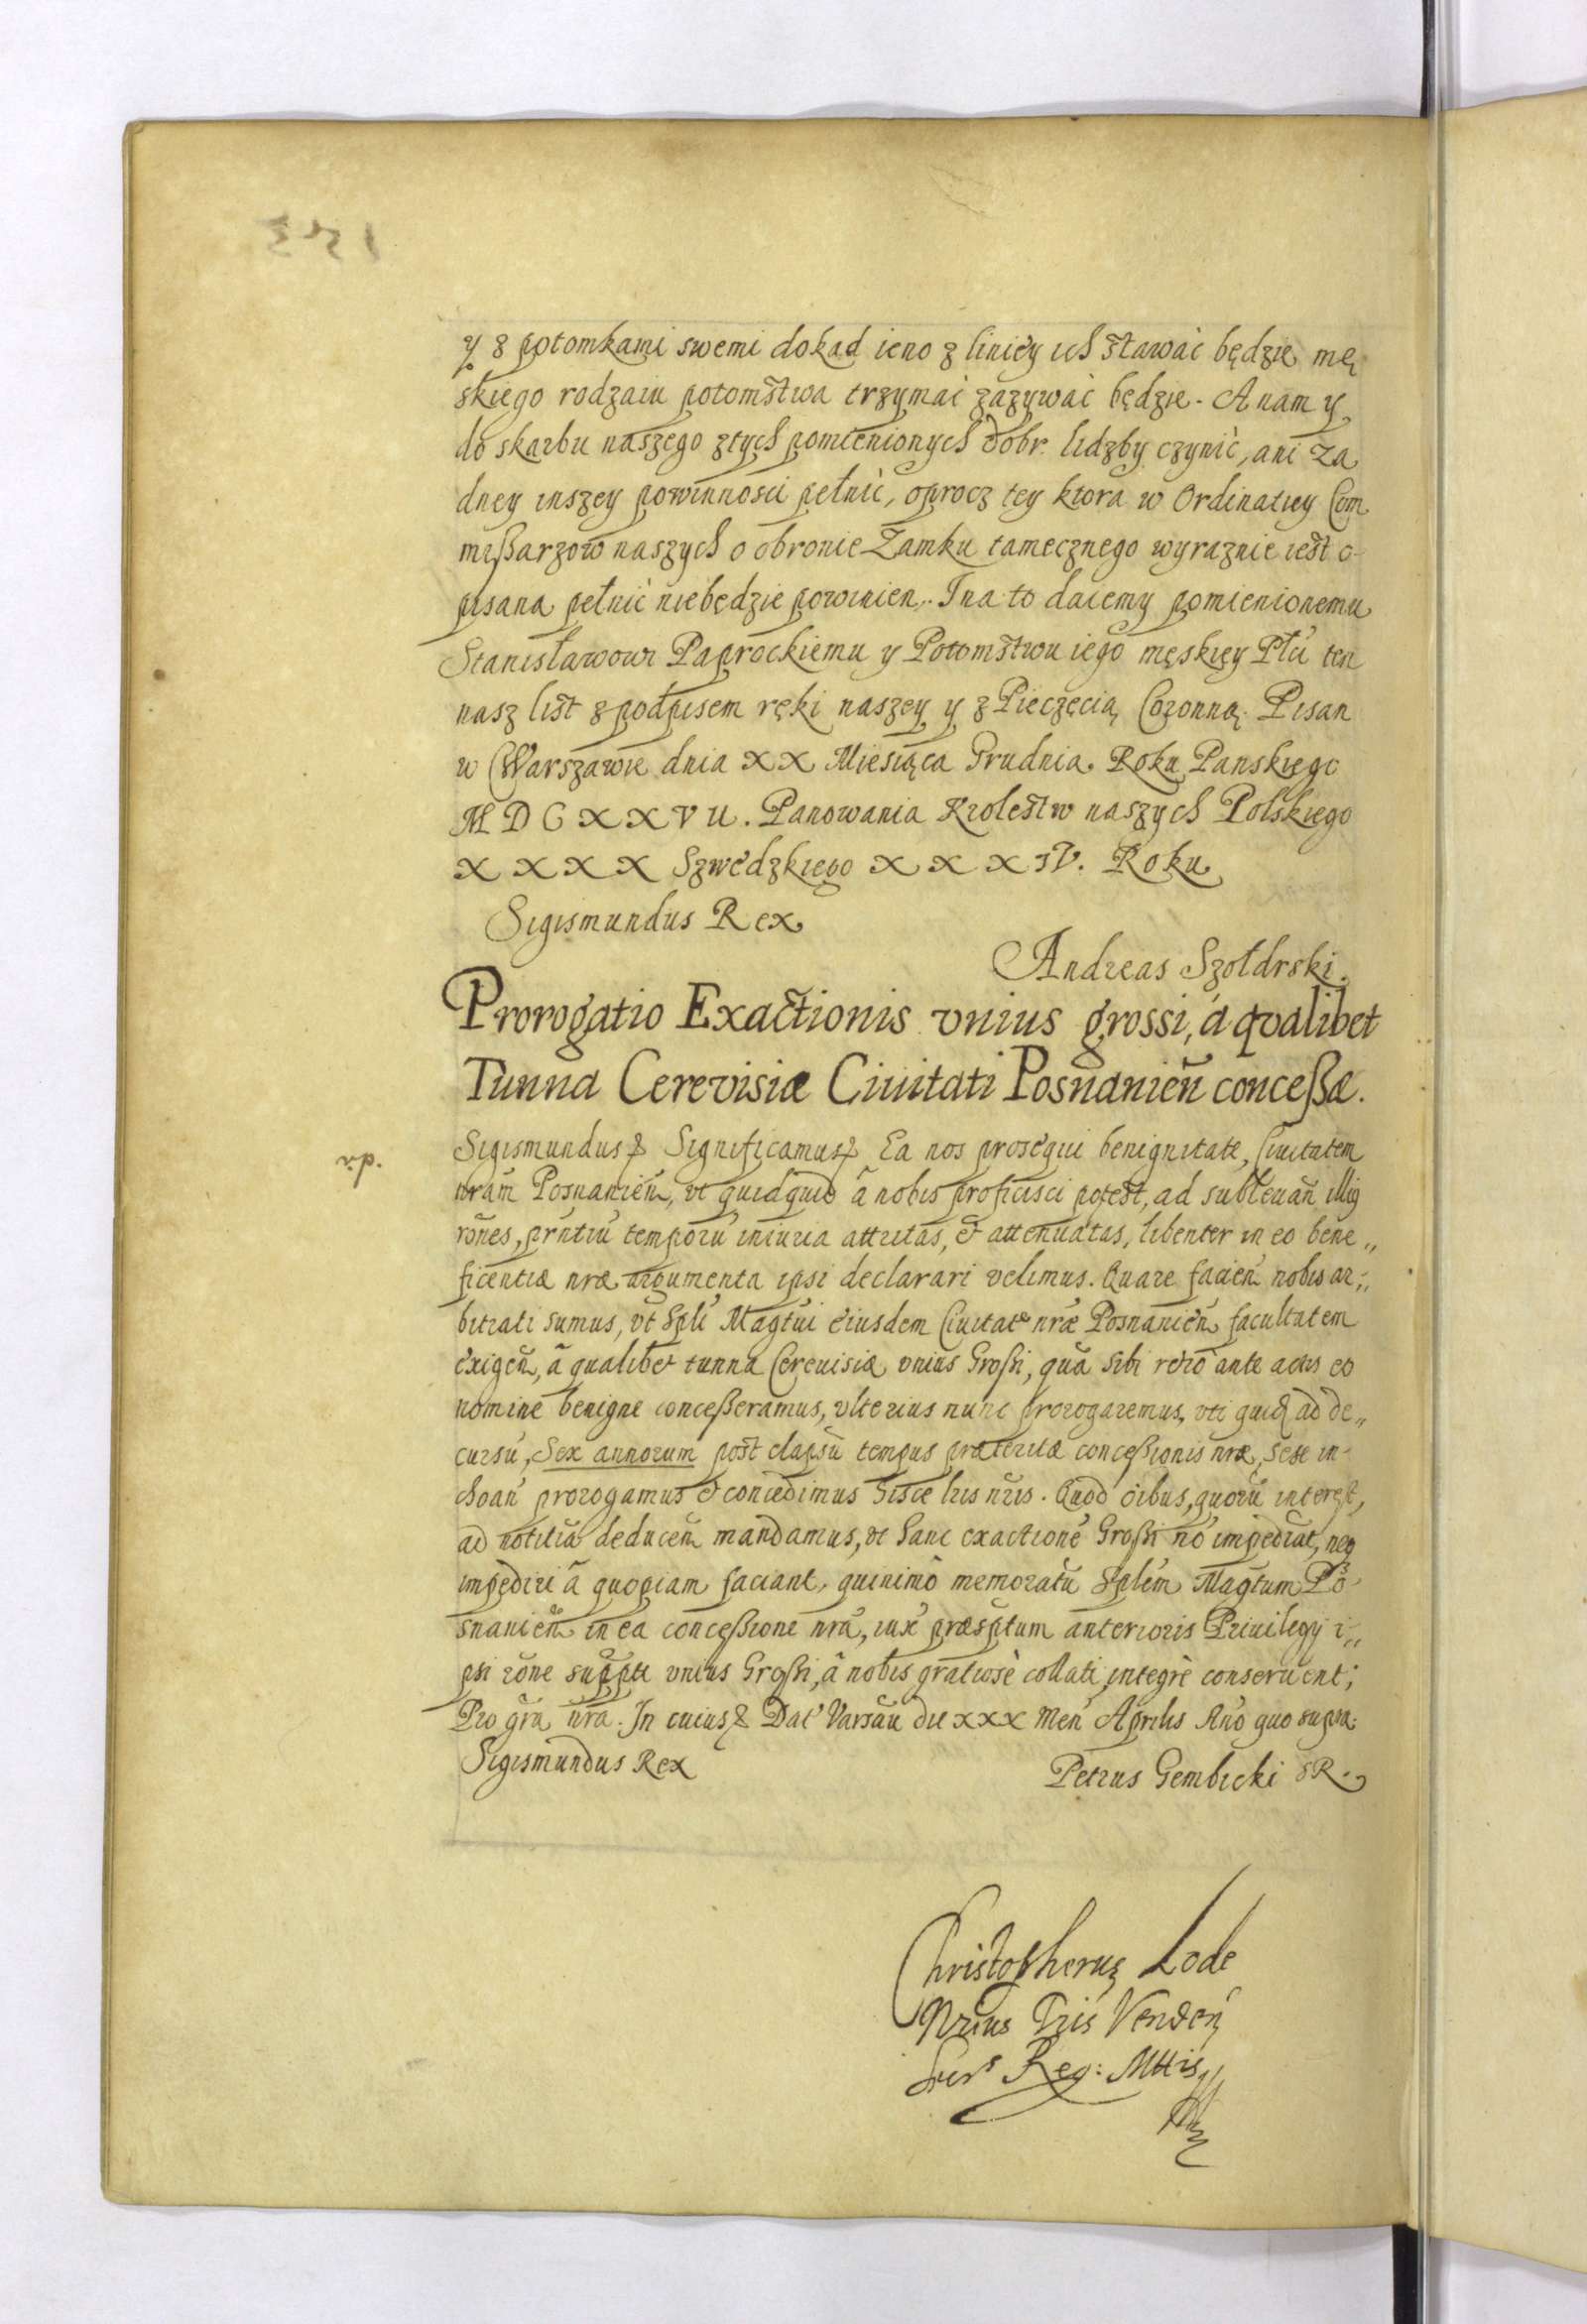 y z potomkami swemi dokad ieno z liniey ich stawać będzie mę
skiego rodzaiu potomstwa trzymać zazywać będzie. A nam y
do skarbu naszego z tych pomienionych dobr lidzby czynić, ani Ża
dney inszey powinnosci pełnić, oprocz tey ktora w Ordinatiey Com
mißarzow naszych o obronie Zamku tamecznego wyraznie iest o-
pisana pełnić niebędzie powinien. I na to daiemy pomienionemu
Stanisławowi Paprockiemu y Potomstwu iego męskiey Płci ten
nasz list z podpisem ręki naszey y z Pieczęcią Coronną. Pisan
w Warszawie dnia XX Miesiąca Grudnia. Roku Panskiego
MDCXXVII. Panowania Krolestw naszych Polskiego
XXXX Szwedzkiego XXXIV. Roku
Sigismundus Rex
Andreas Szołdrski.
Prorogatio Exactionis vnius grossi, á qvalibet
Tunna Cerevisiæ Ciuitati Posnanieñ conceßæ.
Sigismundus & Significamus & Ea nos prosequi benignitate, Ciuitatem
nrãm Posnanieñ, vt quidquid â nobis proficisci potest, ad subleuañ illiq
rões, prñtiũ temporũ iniuria attritas, & attenuatas, libenter in eo bene„
ficentiæ nræ argumenta ipsi declarari velimus. Quare facieñ nobis ar„
bitrati sumus, vt Spli Magtui eiusdem Ciuitatꝭ nræ Posnanieñ facultatem
exigeñ, â qualibet tunna Cereuisiæ vnius Großi, quã sibi retro ante actis eo
nomine benigne conceßeramus, vlterius nunc prorogaremus, vti quidẽ ad de„
cursũ, Sex annorum post elapsũ tempus præteritæ conceßionis nræ, sese in-
choañ prorogamus & concedimus hisce lris nris. Quod õibus, quorũ interest,
ad notitiã deduceñ mandamus, vt hanc exactionẽ Großi nõ impediãt, neq
impediri â quopiam faciant, quinimô memoratũ Splem Magtum Po-
snanieñ in ea conceßione nrã, iux præsptum anterioris Priuilegij i„
psi rõne suppti vnius Großi, â nobis gratiosè collati, integrè conseruent;
Pro grã nrã. In cuius & Dat Varsãu die XXX Meñ Aprilis Año quo supra.
Sigismundus Rex
Petrus Gembicki SR.
Christopherus Lode
Nrius Tris Venden
Reg: Mttis